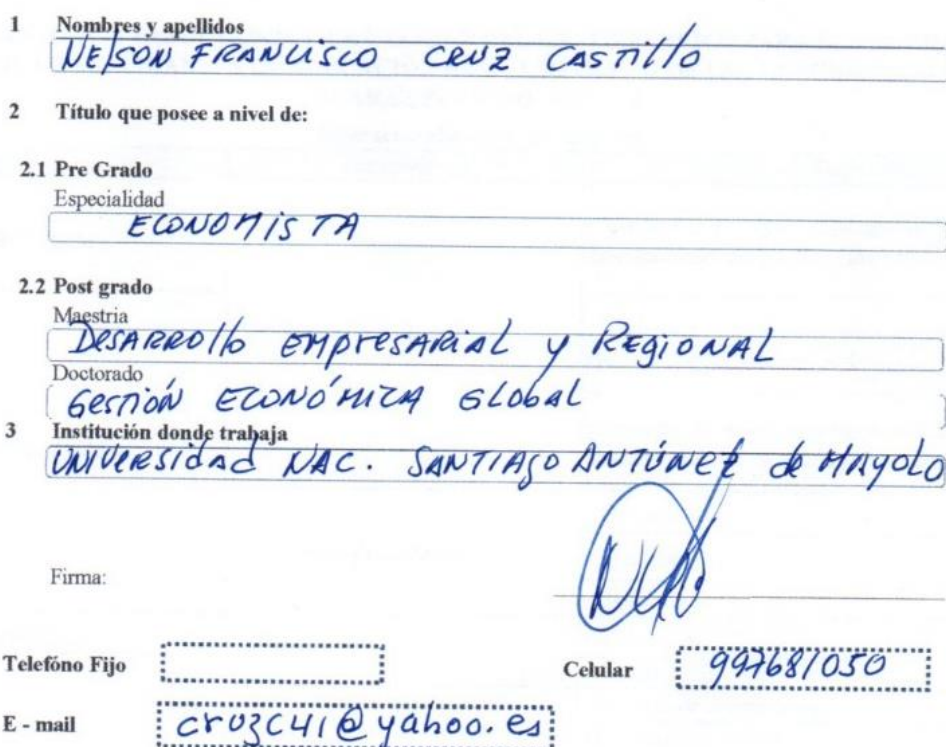 1 Nombres y apellidos
NELSON FRANCISCO CRUZ CASTILLO
2 Título que posee a nivel de:
2.1 Pre Grado
Especialidad
ECONOMISTA
2.2 Post grado
Maestria
DESARROLLO EMPRESARIAL y REGIONAL
Doctorado
GESTIÓN ECONÓMICA GLOBAL
3 Institución donde trabaja
UNIVERSIDAD NAC. SANTIAGO ANTÚNEZ de MAYOLO
Firma:
Telefóno Fijo
Celular 997681050
E - mail cruzc41@yahoo.es